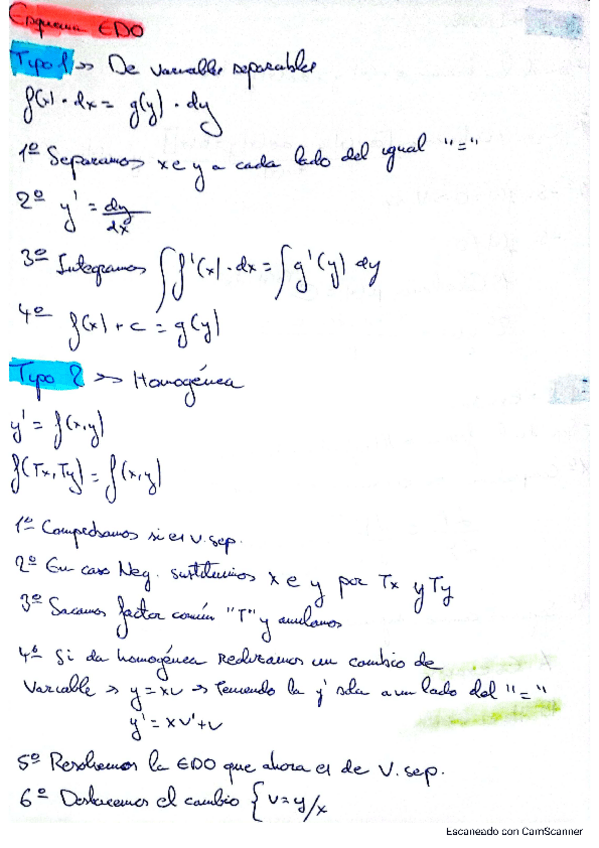 Esquema EDO
Tipo 1 >> De variables separables
f(x) · dx = g(y) · dy
1º Separamos x e y a cada lado del igual "="
2º y' = dy/dx
3º Integramos ∫f'(x) · dx = ∫g'(y) dy
4º f(x) + c = g(y)
Tipo 2 >> Homogénea
y' = f(x,y)
f(Tx,Ty) = f(x,y)
1º Comprobamos si es v.sep.
2º En caso Neg. sustituimos x e y por Tx y Ty
3º Sacamos factor común "T" y anulamos
4º Si da homogénea Realizamos un cambio de
Variable > y = xv > Teniendo la y' sola a un lado del "="
y' = xv' + v
5º Resolvemos la EDO que ahora es de V. sep.
6º Deshacemos el cambio { v = y/x
Escaneado con CamScanner